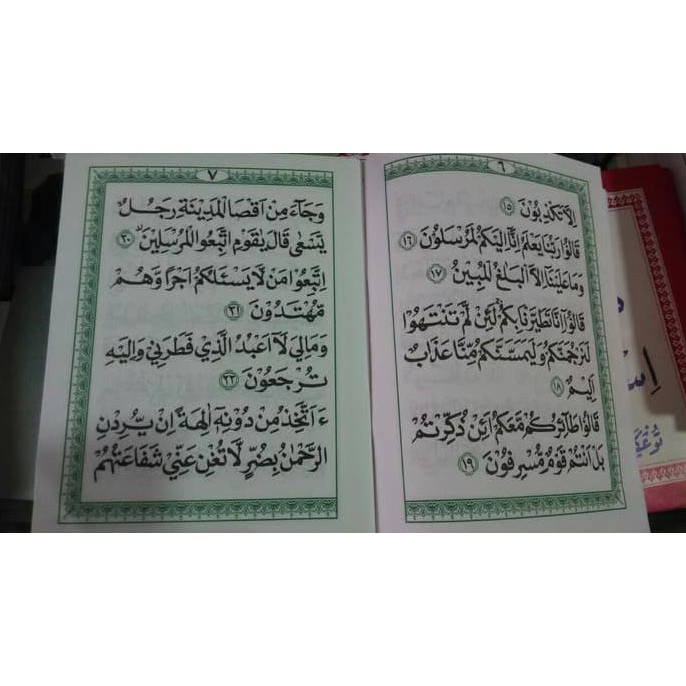 ٦
اِلَّا تَكْذِبُوْنَ ١٥
قَالُوْا رَبُّنَا يَعْلَمُ اِنَّا اِلَيْكُمْ لَمُرْسَلُوْنَ ١٦
وَمَا عَلَيْنَا اِلَّا الْبَلٰغُ الْمُبِيْنُ ١٧
قَالُوْا اِنَّا تَطَيَّرْنَا بِكُمْ لَئِنْ لَّمْ تَنْتَهُوْا
لَنَرْجُمَنَّكُمْ وَلَيَمَسَّنَّكُمْ مِّنَّا عَذَابٌ
اَلِيْمٌ ١٨
قَالُوْا طَائِرُكُمْ مَّعَكُمْ اَئِنْ ذُكِّرْتُمْ
بَلْ اَنْتُمْ قَوْمٌ مُّسْرِفُوْنَ ١٩
٧
وَجَاءَ مِنْ اَقْصَا الْمَدِيْنَةِ رَجُلٌ
يَّسْعٰى قَالَ يٰقَوْمِ اتَّبِعُوا الْمُرْسَلِيْنَ ٢٠
اِتَّبِعُوْا مَنْ لَّا يَسْئَلُكُمْ اَجْرًا وَّهُمْ
مُّهْتَدُوْنَ ٢١
وَمَالِيَ لَا اَعْبُدُ الَّذِيْ فَطَرَنِيْ وَاِلَيْهِ
تُرْجَعُوْنَ ٢٢
ءَاَتَّخِذُ مِنْ دُوْنِهٖ اٰلِهَةً اِنْ يُّرِدْنِ
الرَّحْمٰنُ بِضُرٍّ لَّا تُغْنِ عَنِّيْ شَفَاعَتُهُمْ